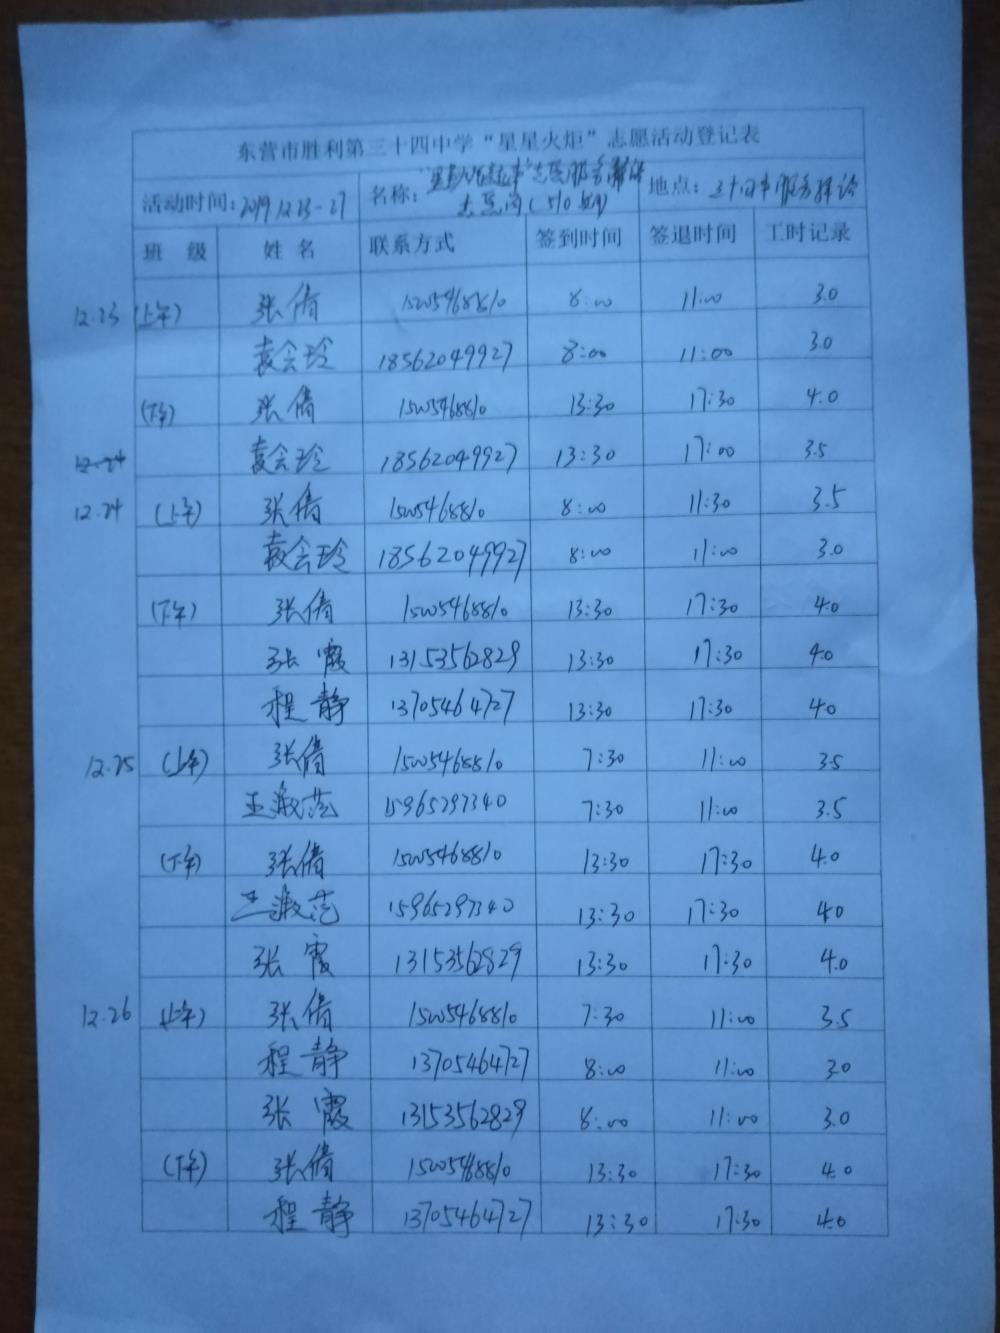 东营市胜利第三十四中学“星星火炬”志愿活动登记表
活动时间:2019.12.23-27 名称: 志愿服务 (510 地点: 三十四中服务
班 级 姓 名 联系方式 签到时间 签退时间 工时记录
12.23 (上午) 张倩 15005468810 8:00 11:00 3.0
袁会玲 18562049927 8:00 11:00 3.0
(下午) 张倩 15005468810 13:30 17:30 4.0
12.24 袁会玲 18562049927 13:30 17:00 3.5
12.24 (上午) 张倩 15005468810 8:00 11:30 3.5
袁会玲 18562049927 8:00 11:00 3.0
(下午) 张倩 15005468810 13:30 17:30 4.0
张霞 13153562829 13:30 17:30 4.0
程静 13705464727 13:30 17:30 4.0
12.25 (上午) 张倩 15005468810 7:30 11:00 3.5
王淑范 15965297340 7:30 11:00 3.5
(下午) 张倩 15005468810 13:30 17:30 4.0
王淑范 15965297340 13:30 17:30 4.0
张霞 13153562829 13:30 17:30 4.0
12.26 (上午) 张倩 15005468810 7:30 11:00 3.5
程静 13705464727 8:00 11:00 3.0
张霞 13153562829 8:00 11:00 3.0
(下午) 张倩 15005468810 13:30 17:30 4.0
程静 13705464727 13:30 17:30 4.0